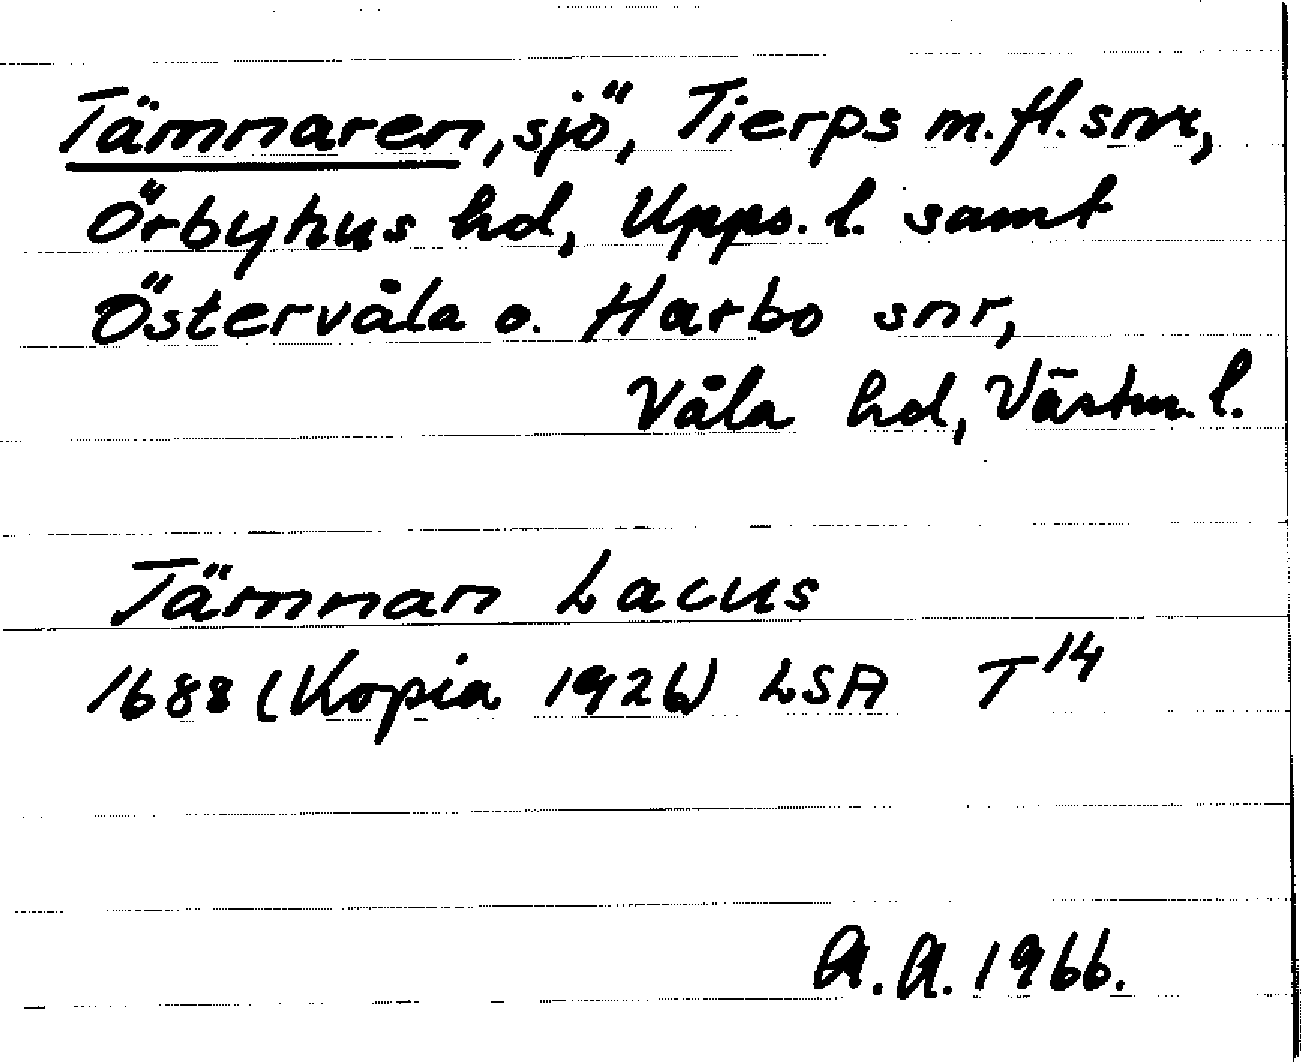 Tämnaren, sjö, Tierps m.fl. snr,
Örbyhus hd, Upps. l. samt
Östervåla o. Harbo snr,
Våla hd, Västm. l.
Tämnan Lacus
1688 (Kopia 1926) LSA T¹⁴
A.A. 1966.